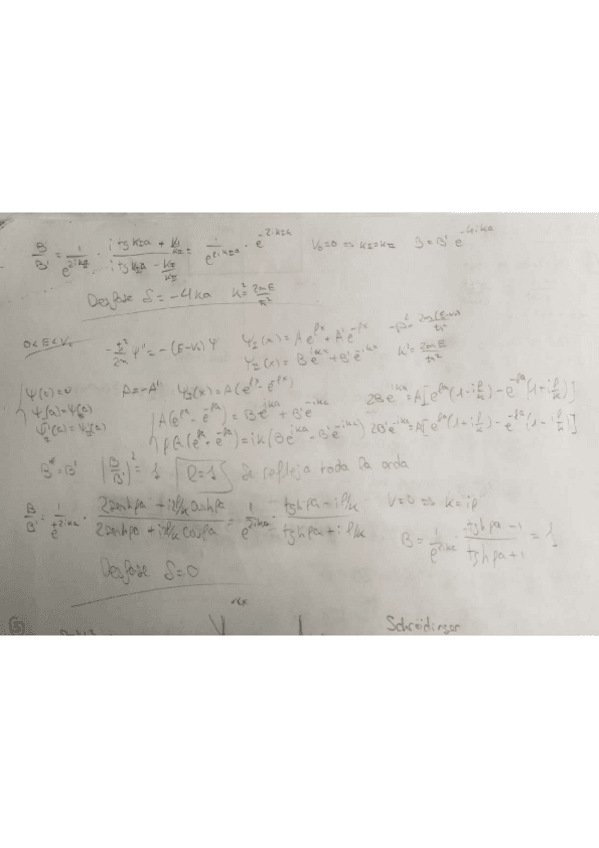 B/B' = 1/e^{2ika} · (i tg k₂a + k₁/k₂)/(i tg k₂a - k₁/k₂) = 1/e^{2ik₂a} · e^{-2ik₂a} V₀=0 ⇒ k₂=k₁ B=B' e^{-4ika}
Desfase δ = -4ka k² = 2mE/ħ²
0<E<V₀ -ħ²/2m ψ'' = -(E-V₀)ψ ψ₁(x) = A e^{ρx} + A' e^{-ρx} -ρ² = 2m(E-V₀)/ħ²
ψ₂(x) = B e^{ikx} + B' e^{-ikx} k² = 2mE/ħ²
ψ(0)=0 A=-A' ψ₁(x) = A(e^{ρx} - e^{-ρx}) 2Be^{ika} = A[e^{ρa}(1-iρ/k) - e^{-ρa}(1+iρ/k)]
ψ₁(a)=ψ₂(a) A(e^{ρa} - e^{-ρa}) = Be^{ika} + B'e^{-ika}
ψ'₁(a)=ψ'₂(a) ρA(e^{ρa} + e^{-ρa}) = ik(Be^{ika} - B'e^{-ika}) 2B'e^{-ika} = A[e^{ρa}(1+iρ/k) - e^{-ρa}(1-iρ/k)]
B*=B' |B/B'|² = 1 R=1 Se refleja toda la onda
B/B' = 1/e^{2ika} · (2senhρa - iρ/k coshρa)/(2senhρa + iρ/k cosρa) = 1/e^{2ika} · (tghρa - iρ/k)/(tghρa + iρ/k) V=0 ⇒ k=iρ
B = 1/e^{2ika} · (tghρa - 1)/(tghρa + 1) = 1
Desfase δ=0
(5) Schrödinger